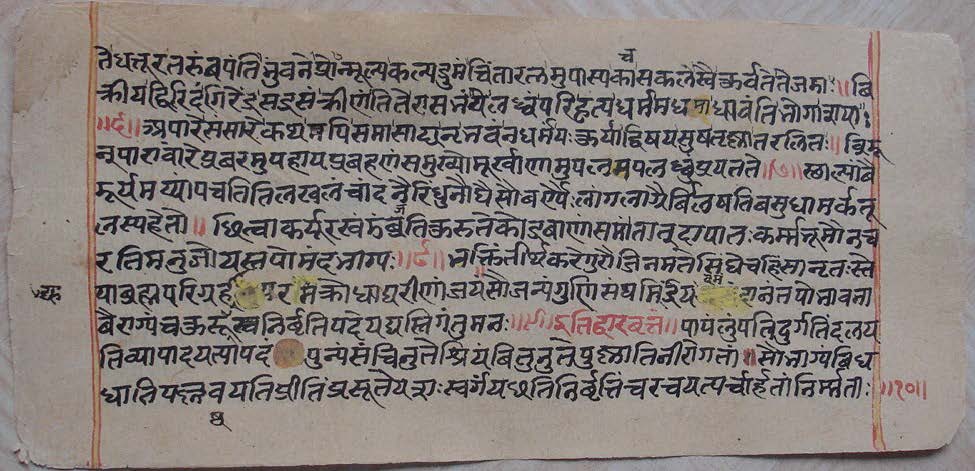 ते धत्तूरतरुं वपंति भुवने प्रोन्मूल्य कल्पद्रुमं चिंतारत्नमुपास्य काच सकलं स्वै कुर्वते ते जडाः ॥ वि
क्रीय द्विरिदं गिरेंद्रसदृसं क्रीणंति ते रासभं ये लब्धं परिहृत्य धर्ममधमा धावंति भोगासया ॥
॥६॥ अपारे संसारे कथमपि समासाद्य नृभवं न धर्मं यः कुर्याद्विषयसुषतृष्णातरलितः ॥ ब्रिडं
न् पारावारे प्रवरमुपहाय प्रवहणं स मुख्यो मूर्खाणामुपलमुपलब्धुं प्रयतते ॥७॥ स्थाल्यां वै
डूर्यमय्यां पचति तिलखलं चांदनैरिंधनौघै सौवर्ण्यैर्लांगलाग्रैर्विलषति वसुधामर्कतू
लस्य हेतो ॥ छित्वा कर्पूरखंडं वृति कुरुते कोद्रवाणां समंतात् प्राप्य कर्मभूमी न च
रति मनुजो यस्तपो मंदभाग्यः ॥८॥ भक्तिं तीर्थकरे गुरौ जिनमते संघे च हिंसानृतःस्ते
याब्रह्मपरिग्रह परमं क्रोधाद्यरीणां जयं सौजन्यं गुणिसंघमिंद्रिय दमं दानं तपो भावना
वैराग्यं च कुरुष्व निर्वृतिपदे यद्यस्ति गंतुं मनः ॥९॥ इति द्वारवृत्तं ॥ पापं लुपति दुर्गतिं दलय
ति व्यापादयत्यापदं पुन्य संचिनुते श्रियं वितनुते पुष्णाति नीरोगतां ॥ सौभाग्यं विद
धाति पल्लवयति प्रीतिं प्रसूते यशः स्वर्गं यछति निर्वृतिं च रचयत्यर्चार्हतां निर्मिता ॥१०॥